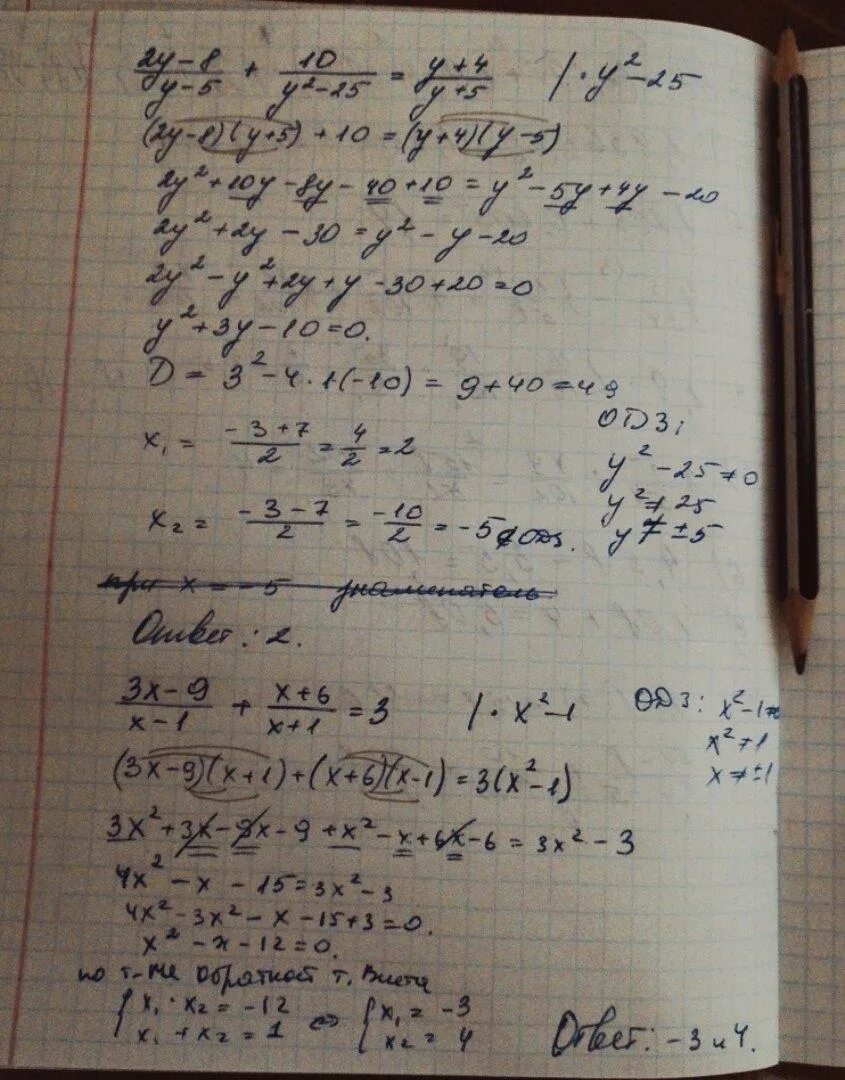 (2y-8)/(y-5) + 10/(y²-25) = (y+4)/(y+5) /·y²-25
(2y-8)(y+5)+10=(y+4)(y-5)
2y²+10y-8y-40+10=y²-5y+4y-20
2y²+2y-30=y²-y-20
2y²-y²+2y+y-30+20=0
y²+3y-10=0.
D=3²-4·1(-10)=9+40=49
x₁=(-3+7)/2=4/2=2
x₂=(-3-7)/2=-10/2=-5∉ОДЗ.
ОДЗ:
y²-25≠0
y²≠25
y≠±5
при x=-5 знаменатель
Ответ: 2.
(3x-9)/(x-1) + (x+6)/(x+1) = 3 /·x²-1
ОДЗ: x²-1≠0
x²≠1
x≠±1
(3x-9)(x+1)+(x+6)(x-1)=3(x²-1)
3x²+3x-9x-9+x²-x+6x-6=3x²-3
4x²-x-15=3x²-3
4x²-3x²-x-15+3=0.
x²-x-12=0.
по т-ме обратной т. Виета
{x₁·x₂=-12 ⇔ {x₁=-3
x₁+x₂=1 x₂=4
Ответ: -3 и 4.